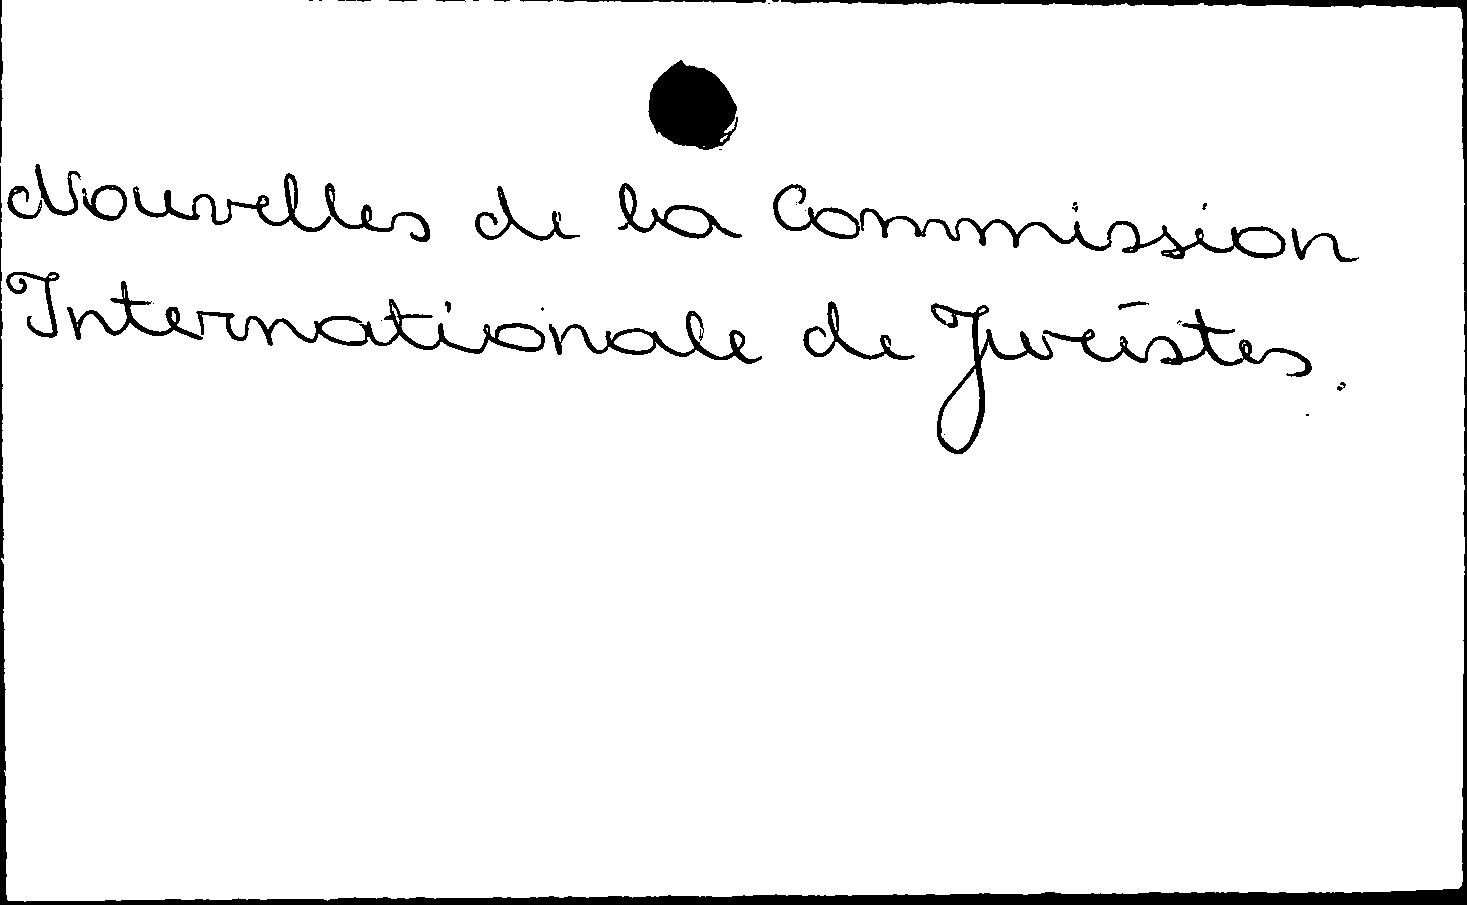 Nouvelles de la Commission
Internationale de Juristes.